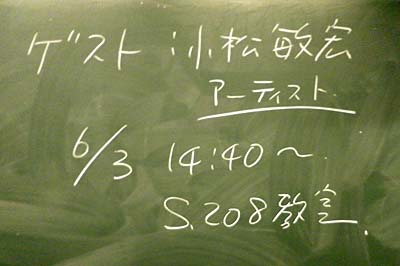 ゲスト:小松敏宏
アーティスト
6/3 14:40〜
S.208教室.